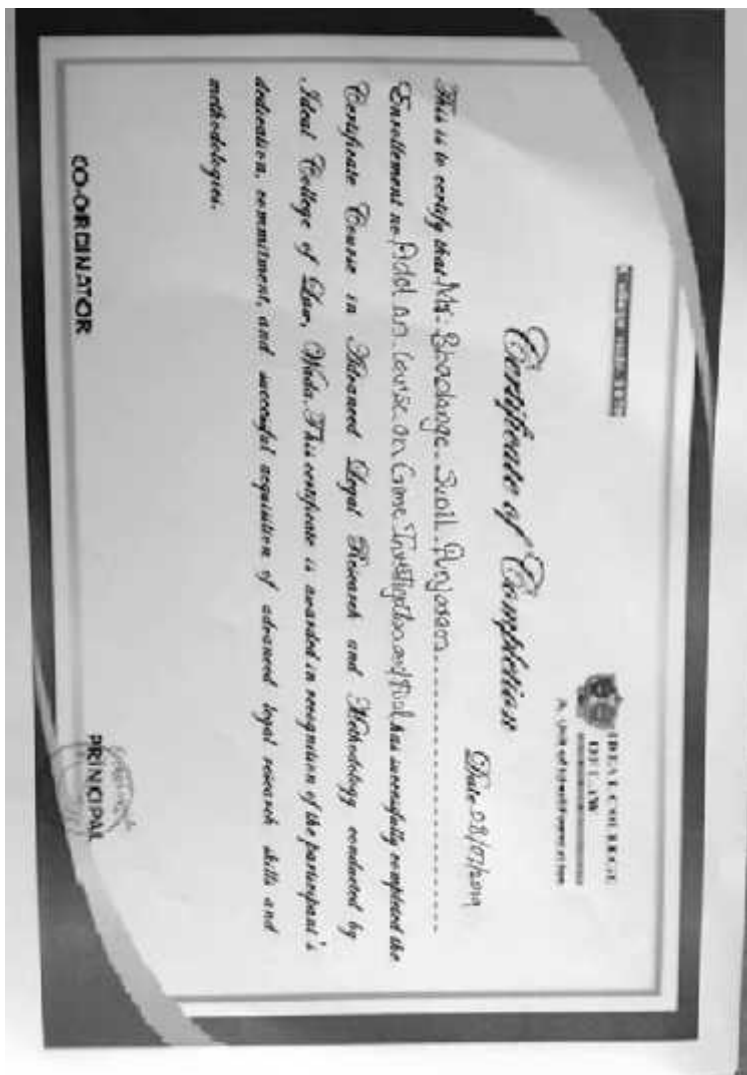 IDEAL COLLEGE
OF LAW
Certificate of Completion
Date
This is to certify that Mr.
Enrollement no Add on Course on Crime Investigation and has successfully completed the
Certificate Course in Advanced Legal Research and Methodology conducted by
Ideal College of Law, Wada. This certificate is awarded in recognition of the participant's
dedication, commitment, and successful acquisition of advanced legal research skills and
methodologies.
CO-ORDINATOR
PRINCIPAL